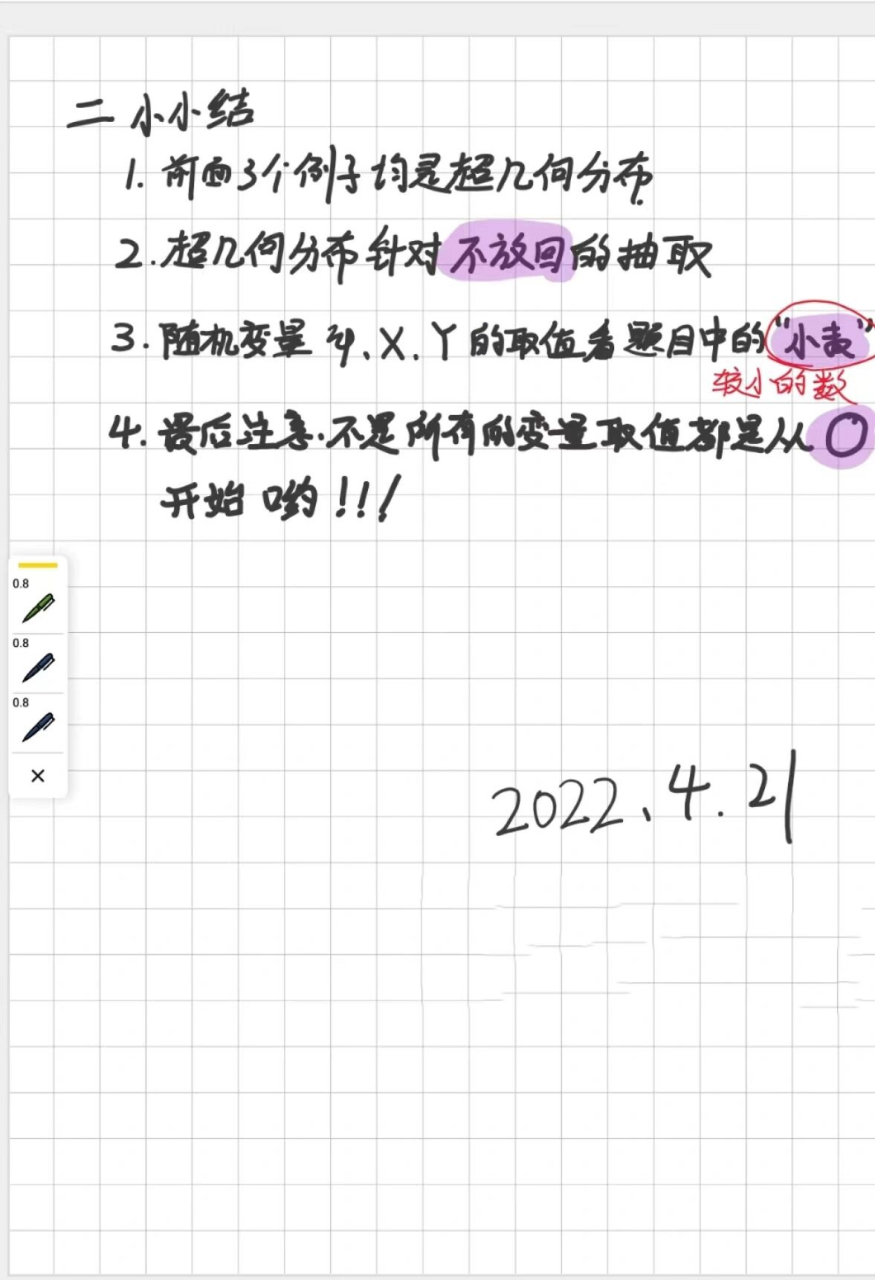 二 小小结
1. 前面3个例子均是超几何分布
2. 超几何分布针对不放回的抽取
3. 随机变量 ξ、X、Y 的取值看题目中的“小袁”
较小的数
4. 最后注意.不是所有的变量取值都是从 0
开始哟!!!
0.8
0.8
0.8
2022、4.21